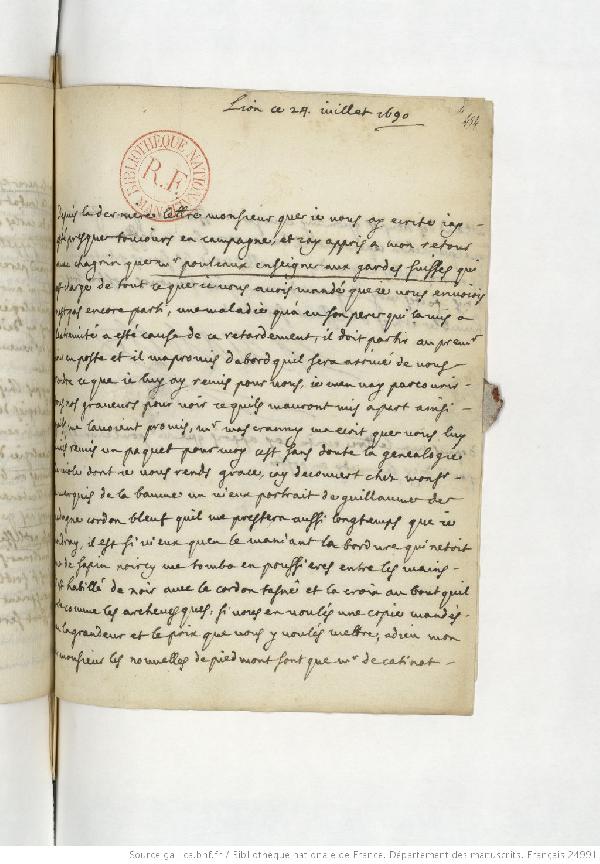 Lion ce 24. iuillet 1690
454
BIBLIOTHEQUE NATIONALE
R.F.
MAN
depuis la derniere lettre monsieur que ie vous ay ecrite iay
esté presque tousiours en campagne, et iay appris a mon retour
avec chagrin que mr pouteaux enseigne aux gardes suisses qui
est charge de tout ce que ie vous avois mandé que ie vous envoiois
nest pas encore parti, une maladie qua eu son pere qui la mis a
lextremité a esté cause de ce retardement, il doit partir au premr
iour en poste et il ma promis dabord quil sera arrivé de vous
rendre ce que ie luy ay remis pour vous. ie men vay parcourir
nos graveurs pour voir ce quils mauront mis apart ainsi
quils me lavoient promis, mr mas ecrit que vous luy
aviés remis un paquet pour moy cest sans doute la genealogie
dont ie vous rends grace, iay decouvert chez monsr
le marquis de la baume un vieux portrait de guillaume de
cordon bleuf quil me prestera aussi longtemps que ie
voudray, il est si vieux quen le maniant la bordure qui netoit
que de sapin noircy me tomba en poussieres entre les mains
il est habillé de noir avec le cordon et la croix au bout quil
porte comme les archevesques, si vous en voulés une copie mandés
m'en la grandeur et le prix que vous y voulés mettre, adieu mon
monsieur les nouvelles de piedmont sont que mr de catinat
Source gallica.bnf.fr / Bibliothèque nationale de France. Département des manuscrits. Français 24991